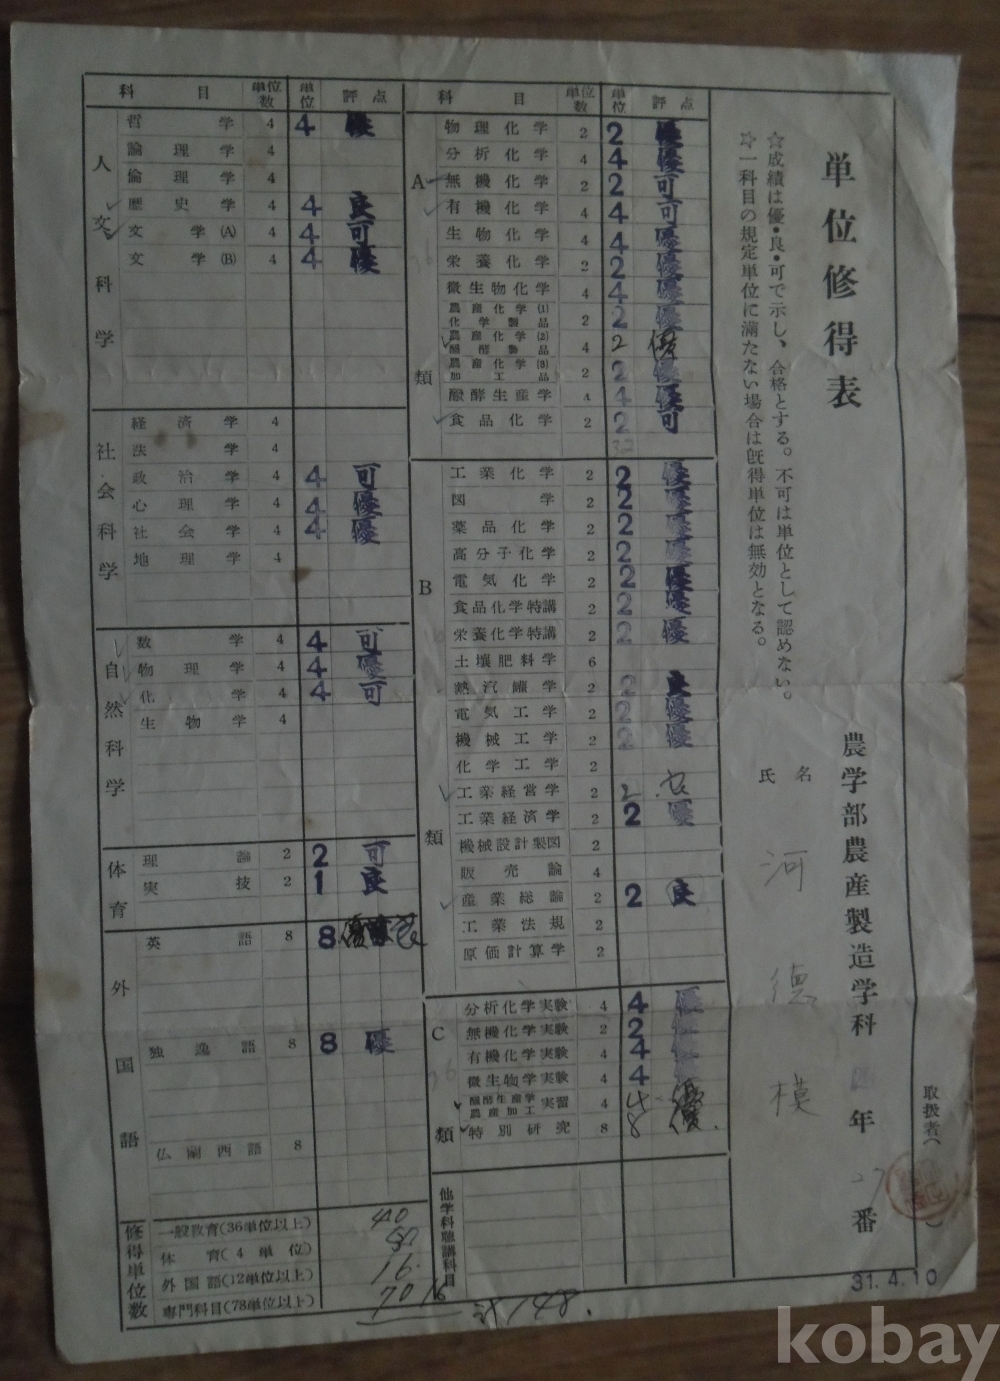 単位修得表
☆成績は優・良・可で示し、合格とする。不可は単位として認めない。
☆一科目の規定単位に満たない場合は既得単位は無効となる。
農学部農産製造学科 年 27番
氏名 河 德 模
取扱者
31.4.10
科目 単位数 単位 評点
人文科学
哲学 4 4 優
論理学 4
倫理学 4
歴史学 4 4 良
文学(A) 4 4 可
文学(B) 4 4 優
社会科学
経済学 4
法学 4
政治学 4 4 可
心理学 4 4 優
社会学 4 4 優
地理学 4
自然科学
数学 4 4 可
物理学 4 4 優
化学 4 4 可
生物学 4
体育
理論 2 2 可
実技 2 1 良
外国語
英語 8 8 優
独逸語 8 8 優
仏蘭西語 8
修得単位数
一般教育(36単位以上) 40
体育(4単位)
外国語(12単位以上) 16
専門科目(78単位以上) 70 16
計 148.
科目 単位数 単位 評点
A類
物理化学 2 2 優
分析化学 4 4 優
無機化学 2 2 可
有機化学 4 4 可
生物化学 4 4 優
栄養化学 2 2 優
微生物化学 4 4 優
農産化学(1)化学製品 2 2 優
農産化学(2)醗酵製品 4 2 優
農産化学(3)加工品 2 2 優
醗酵生産学 4 4 優
食品化学 2 2 可
B類
工業化学 2 2 優
図学 2 2 優
薬品化学 2 2 優
高分子化学 2 2 優
電気化学 2 2 優
食品化学特講 2 2 優
栄養化学特講 2 2 優
土壌肥料学 6
熱汽罐学 2 2 良
電気工学 2 2 優
機械工学 2 2 優
化学工学 2
工業経営学 2 2
工業経済学 2 2 優
機械設計製図 2
販売論 4
産業総論 2 2 良
工業法規 2
原価計算学 2
C類
分析化学実験 4 4 優
無機化学実験 2 2 優
有機化学実験 4 4 優
微生物学実験 4 4 優
醗酵生産学農産加工実習 4 4 優
特別研究 8 8 優
他学科聴講科目
kobay